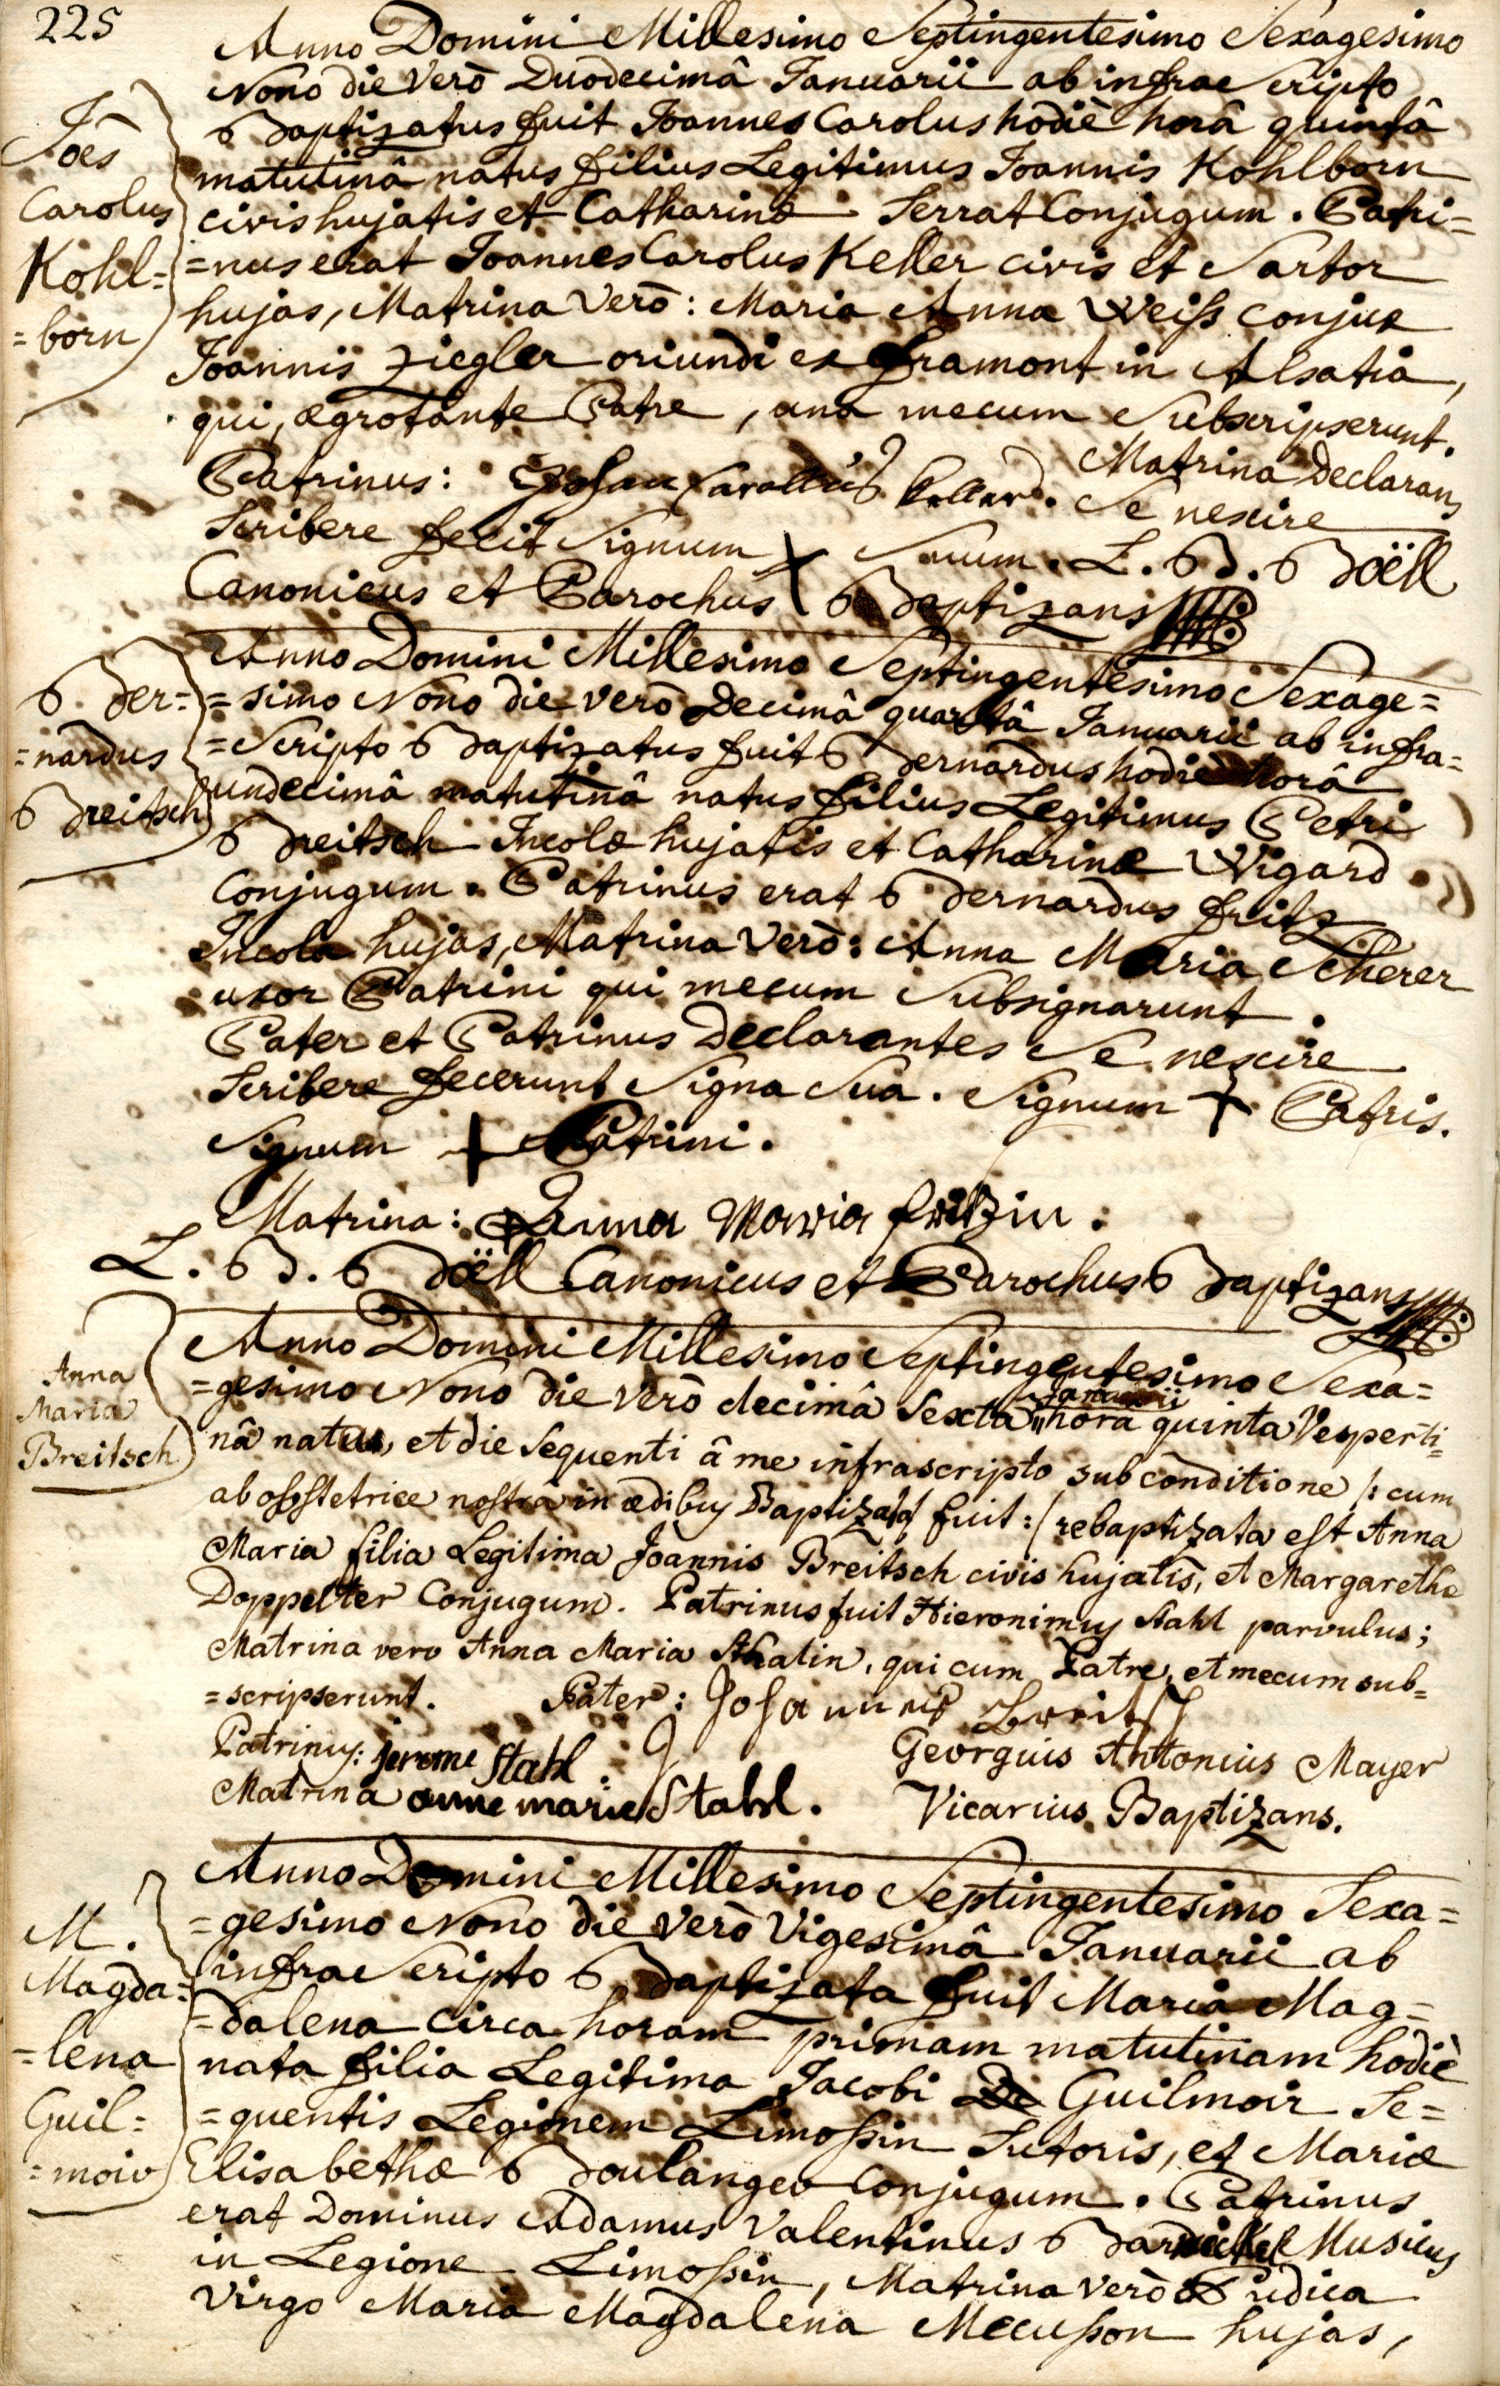 225
Anno Domini Millesimo Septingentesimo Sexagesimo
Nono die verò Duodecimâ Januarii ab infrae Scripto
Baptizatus fuit Joannes Carolus hodiè horâ quintâ
matutinâ natus filius Legitimus Joannis Kohlborn
civis hujatis et Catharinæ Serrat Conjugum. Patri=
=nus erat Joannes Carolus Keller civis et Sartor
hujas, Matrina verò: Maria Anna Weiss conjux
Joannis Ziegler oriundi ex framont in Alsatia,
qui, ægrotante Patre, una mecum Subscripserunt.
Patrinus: Johan Carollus Keller. Matrina Declarans
Se nescire
Scribere fecit Signum X Suum. L. B. Boëll
Canonicus et Parochus Baptizans
Joês
Carolus
Kohl=
=born
Anno Domini Millesimo Septingentesimo Sexage=
=simo Nono die verò Decimâ quartâ Januarii ab infra=
=Scripto Baptizatus fuit Bernardus hodiè horâ
undecimâ matutinâ natus filius Legitimus Petri
Breitsch Incolæ hujatis et Catharinæ Wigard
Conjugum. Patrinus erat Bernardus fritz
Incola hujas, Matrina verò: Anna Maria Scherer
uxor Patrini qui mecum Subsignarunt.
Pater et Patrinus Declarantes Se nescire
Scribere fecerunt Signa Sua. Signum + Patris.
Signum + Patrini.
Matrina: Anna Maria fritzin.
L. B. Boëll Canonicus et Parochus Baptizans
Ber=
=nardus
Breitsch
Anno Domini Millesimo Septingentesimo Sexa=
=gesimo Nono die verò decimâ Sextâ Januarii hora quinta Vesperti=
nâ natus, et die Sequenti â me infrascripto sub conditione /: cum
ab obstetrice nostrâ in ædibus Baptizata fuit :/ rebaptizata est Anna
Maria filia Legitima Joannis Breitsch civis hujatis, et Margarethæ
Doppelter Conjugum. Patrinus fuit Hieronimus Stahl parvulus;
Matrina vero Anna Maria Sthalin, qui cum Patre, et mecum sub=
=scripserunt. Pater: Johannes Breitsch
Patrinus: jerome Stahl. Georgius Antonius Mayer
Matrina anne marie Stahl. Vicarius Baptizans.
Anna
Maria
Breitsch
Anno Domini Millesimo Septingentesimo Sexa=
=gesimo Nono die verò Vigesimâ Januarii ab
infrae Scripto Baptizata fuit Maria Mag=
=dalena circa horam primam matutinam hodiè
nata filia Legitima Jacobi De Guilmoir Se=
=quentis Legionem Limossin Sutoris, et Mariæ
Elisabethæ Boulanger Conjugum. Patrinus
erat Dominus Adamus Valentinus Musicus
in Legione Limossin, Matrina verò Pudica
Virgo Maria Magdalena Mecusson hujas,
M.
Magda=
=lena
Guil=
=moir